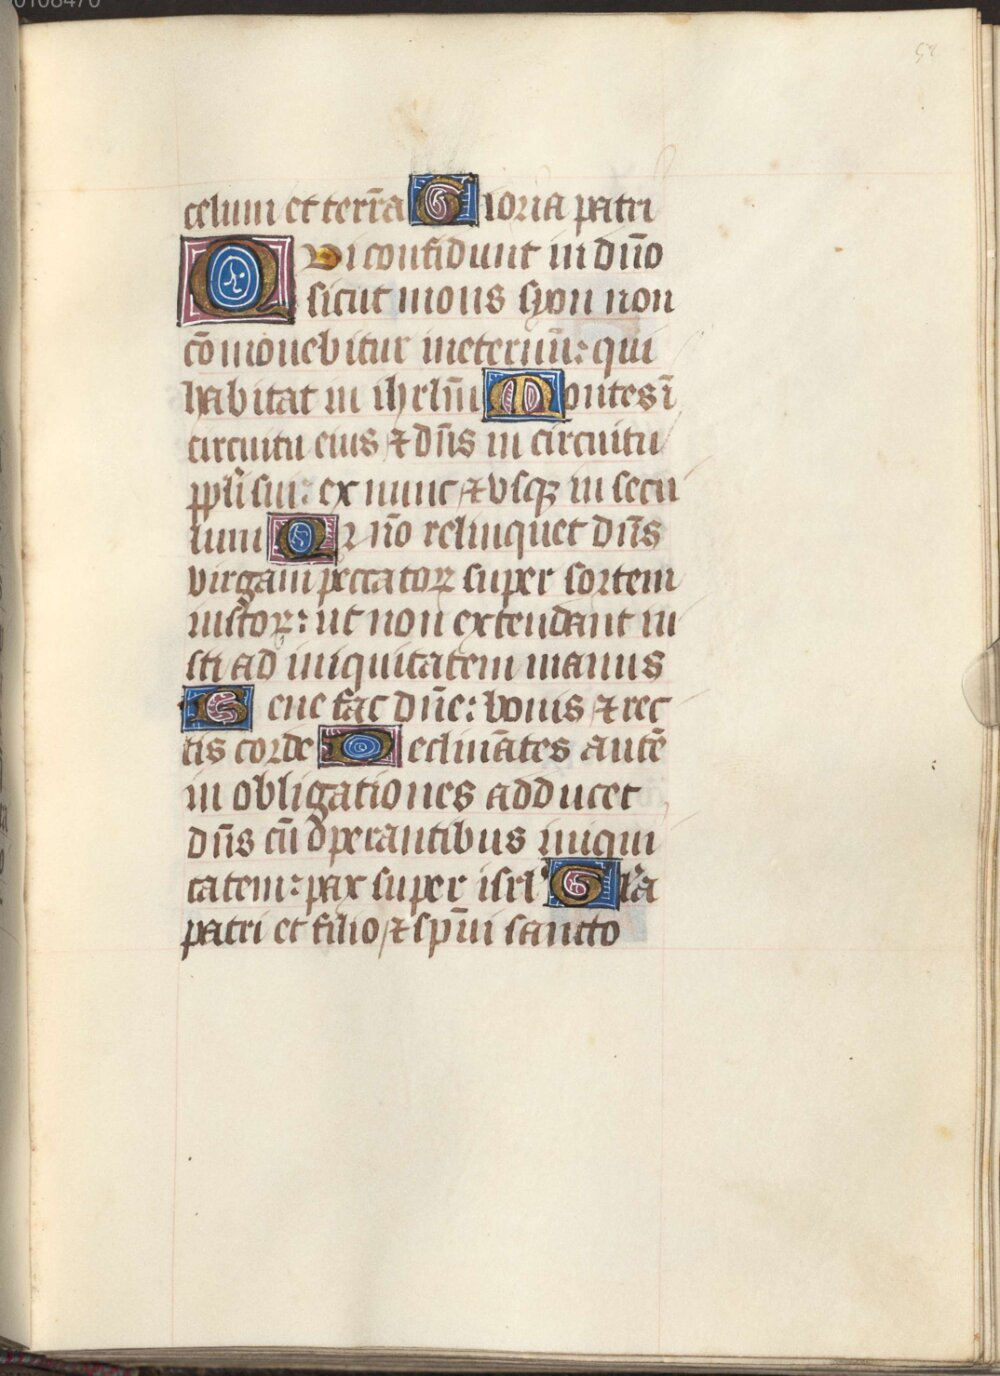 0108470
58
celum et terr̄a Gloria patri
Qvi confidunt in dn̄o
sicut mons syon non
cōmouebitur ineternū: qui
habitat in ihrlm̄ Montes ī
circuitu eius ⁊ dn̄s in circuitu
ppl̄i sui: ex nunc ⁊ vsqꝫ in secu
lum Qꝛ nō relinquet dn̄s
virgam peccatoꝝ super sortem
iustoꝝ: ut non extendant iu
sti ad iniquitatem manus
Bene fac dn̄e: bonis ⁊ rec
tis corde Declināntes autē
in obligationes adducet
dn̄s cū operantibus iniqui
tatem: pax super isrl̓ Gl̓a
patri et filio ⁊ sp̄ui sancto